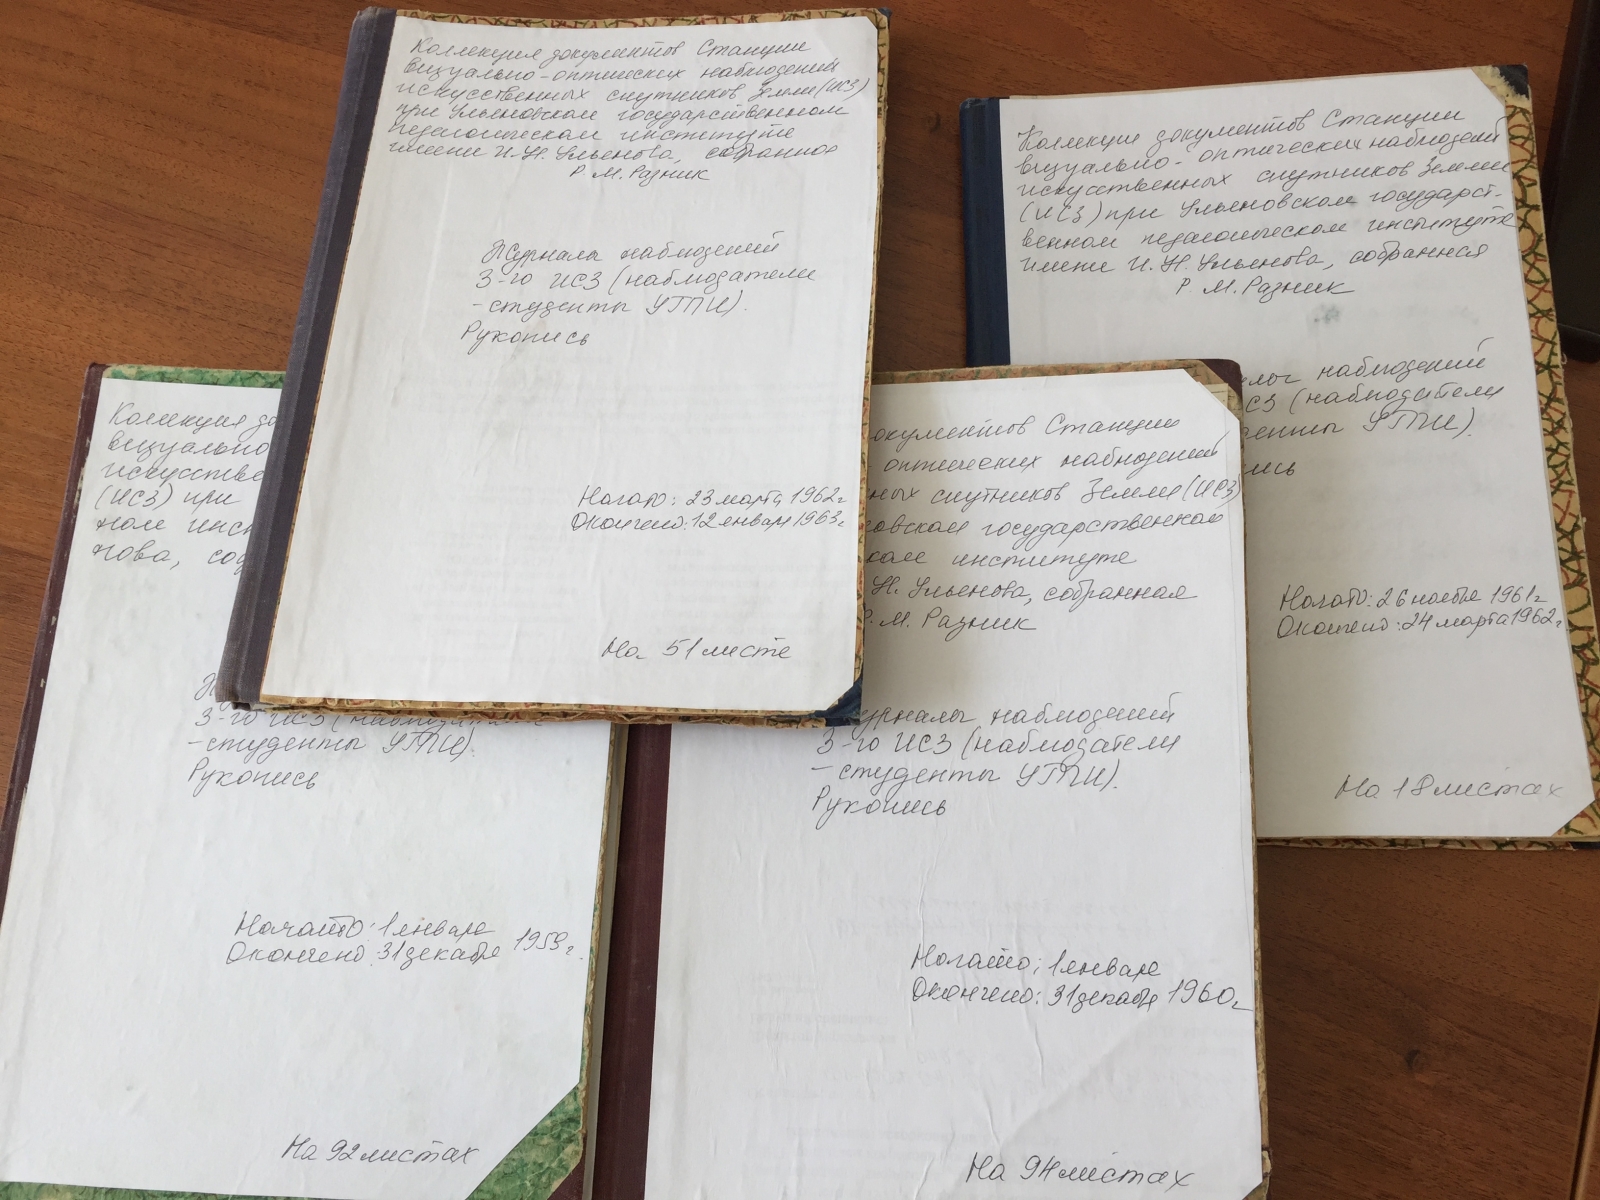 Коллекция документов Станции
визуально-оптических наблюдений
искусственных спутников Земли (ИСЗ)
при Ульяновском государственном
педагогическом институте
имени И.Н. Ульянова, собранное
Р. М. Разник
Журнала наблюдений
3-го ИСЗ (наблюдатели
-студенты УГПИ).
Рукопись
Начато: 23 марта 1962 г
Окончено: 12 января 1963 г.
На 51 листе
Коллекция документов Станции
визуально-оптических наблюдений
искусственных спутников Земли
(ИСЗ) при Ульяновском государст-
венном педагогическом институте
имени И. Н. Ульянова, собранная
Р. М. Разник
наблюдений
(наблюдатели
УГПИ).
Начато: 26 ноября 1961 г
Окончено: 24 марта 1962 г.
На 18 листах
Коллекция
визуально
(ИСЗ) при
ном
нова,
3-го ИСЗ (наблюдатели
-студенты УГПИ).
Рукопись
Начато: 1 января
Окончено 31 декабря 1959 г.
На 92 листах
окументов Станции
оптических наблюдений
ных спутников Земли (ИСЗ)
овском государственном
ском институте
Н. Ульянова, собранная
Р. М. Разник
урналы наблюдений
3-го ИСЗ (наблюдатели
-студенты УГПИ).
Рукопись
Начато; 1 января
Окончено: 31 декабря 1960 г
На 94 листах